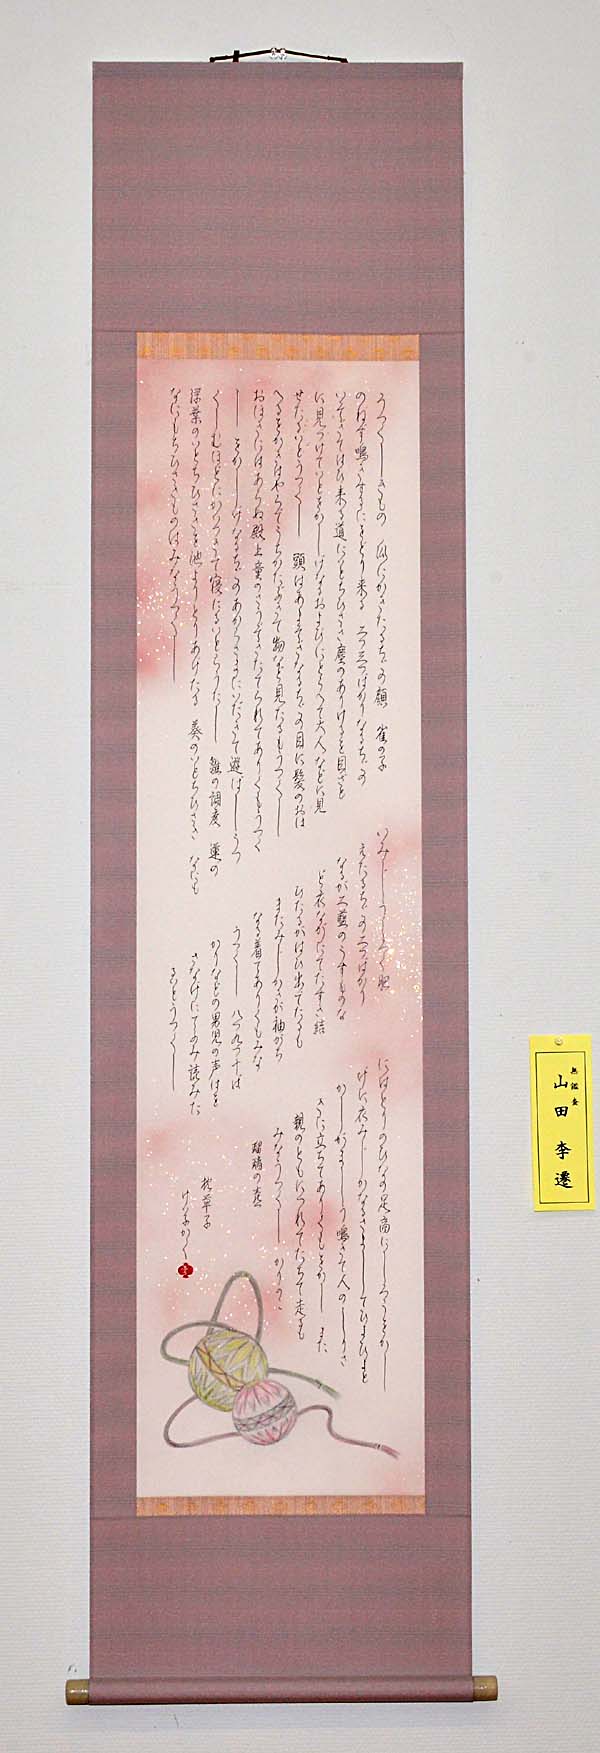 うつくしきもの 瓜にかきたるちごの顔 雀の子
のねず鳴きするにをどり来る 二つ三つばかりなるちごの
いそぎてはひ来る道にいとちひさき塵のありけるを目ざと
に見つけていとをかしげなるおよびにとらへて大人などに見
せたるいとうつくし 頭はあまそぎなるちごの目に髪のおほ
へるをかきはやらでうちかたぶきて物など見たるもうつくし
おほきにはあらぬ殿上童のさうぞきたてられてありくもうつく
し をかしげなるちごのあからさまにいだきて遊ばしうつ
くしむほどにかいつきて寝たるいとらうたし 雛の調度 蓮の
浮葉のいとちひさきを池よりとりあげたる 葵のいとちひさき なにも
なにもちひさきものはみなうつくし
いみじうしろく肥
えたるちごの二つばかり
なるが二藍のうすものな
ど衣ながにてたすき結
ひたるがはひ出でたるも
またみじかきが袖がち
なる着てありくもみな
うつくし 八つ九つ十ほ
かりなどの男児の声はを
さなげにてのみ読みた
るいとうつくし
にはとりのひなの足高にしろうをかし
げに衣みじかなるさましてひよひよと
かしがましう鳴きて人のしりさ
きに立ちてありくもをかし また
親のともにつれてたちて走るも
みなうつくし かりのこ
瑠璃の壺
枕草子
無鑑査
山田 李遷